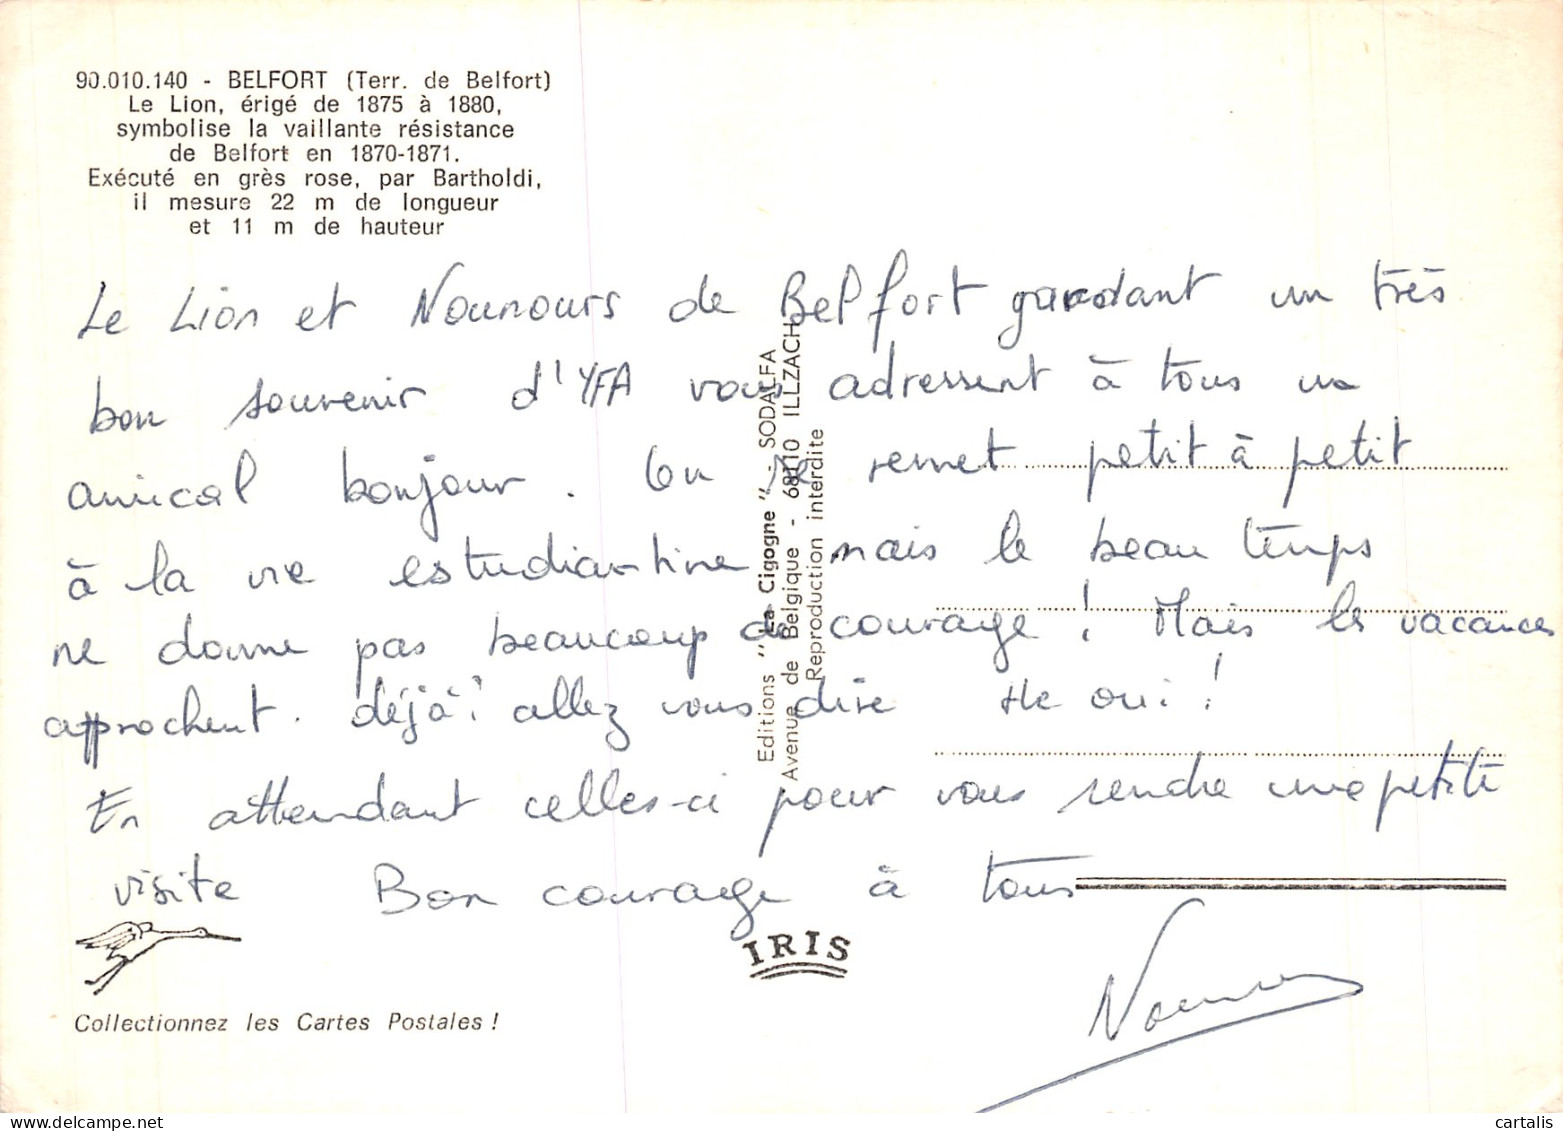 90.010.140 - BELFORT (Terr. de Belfort)
Le Lion, érigé de 1875 à 1880,
symbolise la vaillante résistance
de Belfort en 1870-1871.
Exécuté en grès rose, par Bartholdi,
il mesure 22 m de longueur
et 11 m de hauteur
Le Lion et Nounours de Belfort gardant un très
bon souvenir d'YFA vous adressent à tous un
amical bonjour. On se remet petit à petit
à la vie estudiantine mais le beau temps
ne donne pas beaucoup de courage ! Mais les vacances
approchent. déjà ! allez vous dire He oui !
En attendant celles-ci pour vous rendre une petite
visite Bon courage à tous
Nounours
Editions "La Cigogne" - SODALFA
Avenue de Belgique - 68110 ILLZACH
Reproduction interdite
IRIS
Collectionnez les Cartes Postales !
cartalis